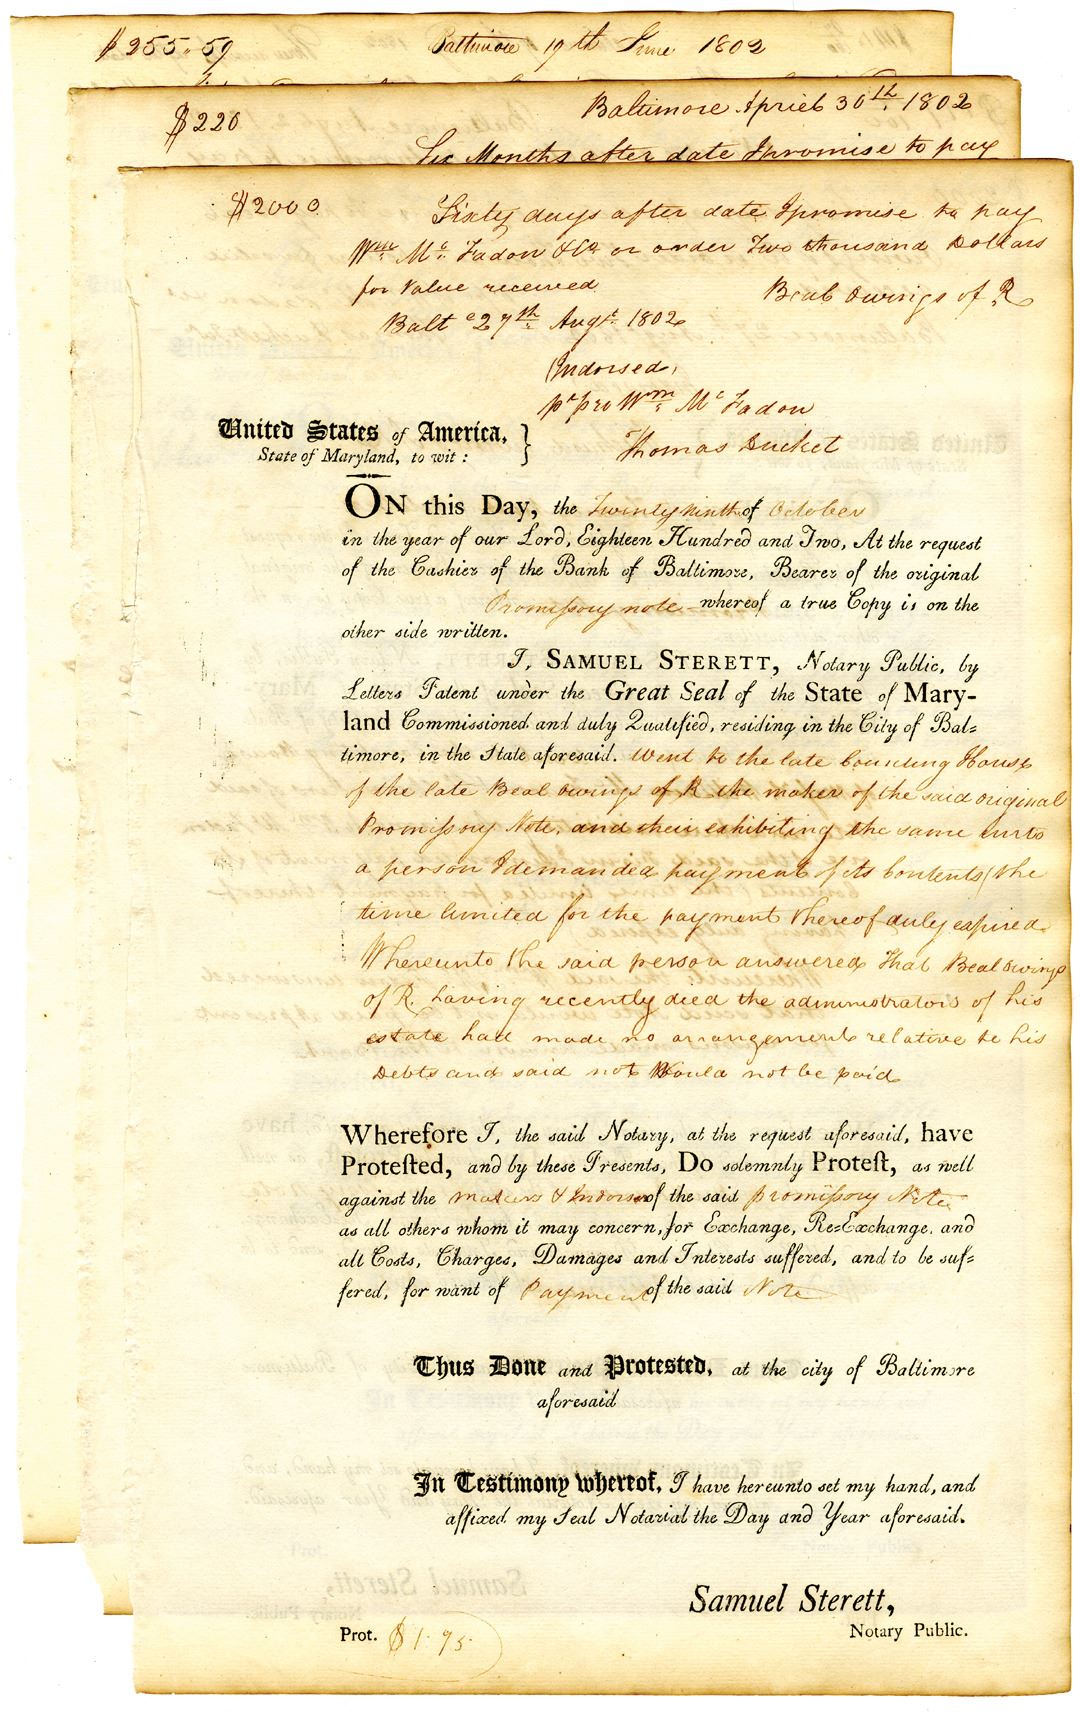 $255.59 Baltimore 19th June 1802
$220 Baltimore Apriel 30th. 1802
Six Months after date I promise to pay
$2000 Sixty days after date I promise to pay
Wm. Mc. Fadon & Co or order Two thousand Dollars
for Value received Beal Owings of R
Balt e 27th Augt. 1802
Indorsed,
pr pro Wm. Mc Fadon
Thomas Ducket
United States of America,
State of Maryland, to wit: }
ON this Day, the Twenty ninth of October
in the year of our Lord, Eighteen Hundred and Two, At the request
of the Cashier of the Bank of Baltimore, Bearer of the original
Promissory note whereof a true Copy is on the
other side written.
I, SAMUEL STERETT, Notary Public, by
Letters Patent under the Great Seal of the State of Mary-
land Commissioned and duly Qualified, residing in the City of Bal=
timore, in the State aforesaid. Went to the late Counting House
of the late Beal Owings of R the maker of the said original
Promissory Note, and their exhibiting the same unto
a person I demanded payment of its Contents (the
time limited for the payment thereof duly expired.
Whereunto the said person answered that Beal Owings
of R. having recently died the administrators of his
estate had made no arrangements relative to his
Debts and said not Would not be paid
Wherefore I, the said Notary, at the request aforesaid, have
Protested, and by these Presents, Do solemnly Protest, as well
against the makers & Indorser of the said promissory Note
as all others whom it may concern, for Exchange, Re=Exchange, and
all Costs, Charges, Damages and Interests suffered, and to be suf=
fered, for want of Payment of the said Note
Thus Done and Protested, at the city of Baltimore
aforesaid
In Testimony whereof, I have hereunto set my hand, and
affixed my Seal Notarial the Day and Year aforesaid.
Samuel Sterett,
Prot. $1.75 Notary Public.